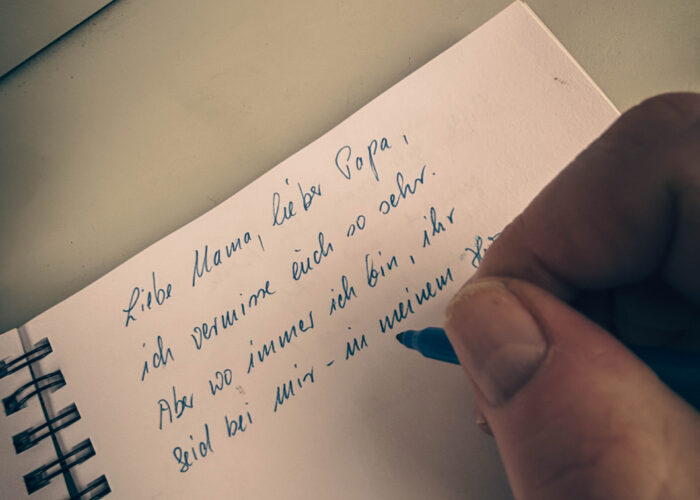 Liebe Mama, lieber Papa,
ich vermisse euch so sehr.
Aber wo immer ich bin, ihr
seid bei mir - in meinem